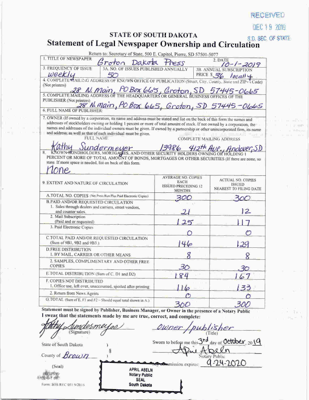 RECEIVED
DEC 16 2019
S.D. SEC OF STATE
STATE OF SOUTH DAKOTA
Statement of Legal Newspaper Ownership and Circulation
Return to: Secretary of State, 500 E. Capitol, Pierre, SD 57501-5077
1. TITLE OF NEWSPAPER Groton Dakota Press
2. DATE 10-1-2019
3. FREQUENCY OF ISSUE weekly
3A. NO. OF ISSUES PUBLISHED ANNUALLY 50
3B. ANNUAL SUBSCRIPTION PRICE $36 locally
4. COMPLETE MAILING ADDRESS OF KNOWN OFFICE OF PUBLICATION (Street, City, County, State and ZIP+4 Code)
(Not printers) 28 N. Main, PO Box 665, Groton, SD 57445-0665
5. COMPLETE MAILING ADDRESS OF THE HEADQUARTERS OR GENERAL BUSINESS OFFICES OF THE
PUBLISHER (Not printer) 28 N. Main, PO Box 665, Groton, SD 57445-0665
6. FULL NAME OF PUBLISHER:
7. OWNER (If owned by a corporation, its name and address must be stated and also on the back of this form the names and
addresses of stockholders owning or holding 1 percent or more of total amount of stock. If not owned by a corporation, the
names and addresses of the individual owners must be given. If owned by a partnership or other unincorporated firm, its name
and address, as well as that of each individual must be given.)
FULL NAME
COMPLETE MAILING ADDRESS
Kathy Sundermeyer 13986 412th Ave., Andover, SD
8. KNOWN BONDHOLDERS, MORTGAGEES, AND OTHER SECURITY HOLDERS OWNING OR HOLDING 1
PERCENT OR MORE OF TOTAL AMOUNT OF BONDS, MORTGAGES OR OTHER SECURITIES
None
9. EXTENT AND NATURE OF CIRCULATION
AVERAGE NO. COPIES EACH ISSUE DURING PRECEDING 12 MONTHS
ACTUAL NO. COPIES ISSUED NEAREST TO FILING DATE
A. TOTAL NO. COPIES 300 300
B. PAID AND/OR REQUESTED CIRCULATION
1. Sales through dealers and carriers, street vendors, and counter sales 21 12
2. Mail Subscription (Paid and/or requested) 125 117
3. Paid Electronic Copies 0 0
C. TOTAL PAID AND/OR REQUESTED CIRCULATION
(Sum of 9B1, 9B2 and 9B3) 146 129
D. FREE DISTRIBUTION
1. BY MAIL, CARRIER OR OTHER MEANS 8 8
2. SAMPLES, COMPLIMENTARY AND OTHER FREE COPIES 30 30
E. TOTAL DISTRIBUTION (Sum of C, D1 and D2) 184 167
F. COPIES NOT DISTRIBUTED
1. Office use, left over, unaccounted, spoiled after printing 116 133
2. Return from News Agents 0 0
G. TOTAL 300 300
Statement must be signed by Publisher, Business Manager, or Owner in the presence of a Notary Public
I swear that the statements made by me are true, correct, and complete:
Kathy Sundermeyer owner/publisher
(Signature) (Title)
State of South Dakota
Sworn to before me this 3rd day of October 2019
County of Brown
April Abeln
Notary Public
expires: 9-24-2020
(Seal)
APRIL ABELN
Notary Public
SEAL
South Dakota